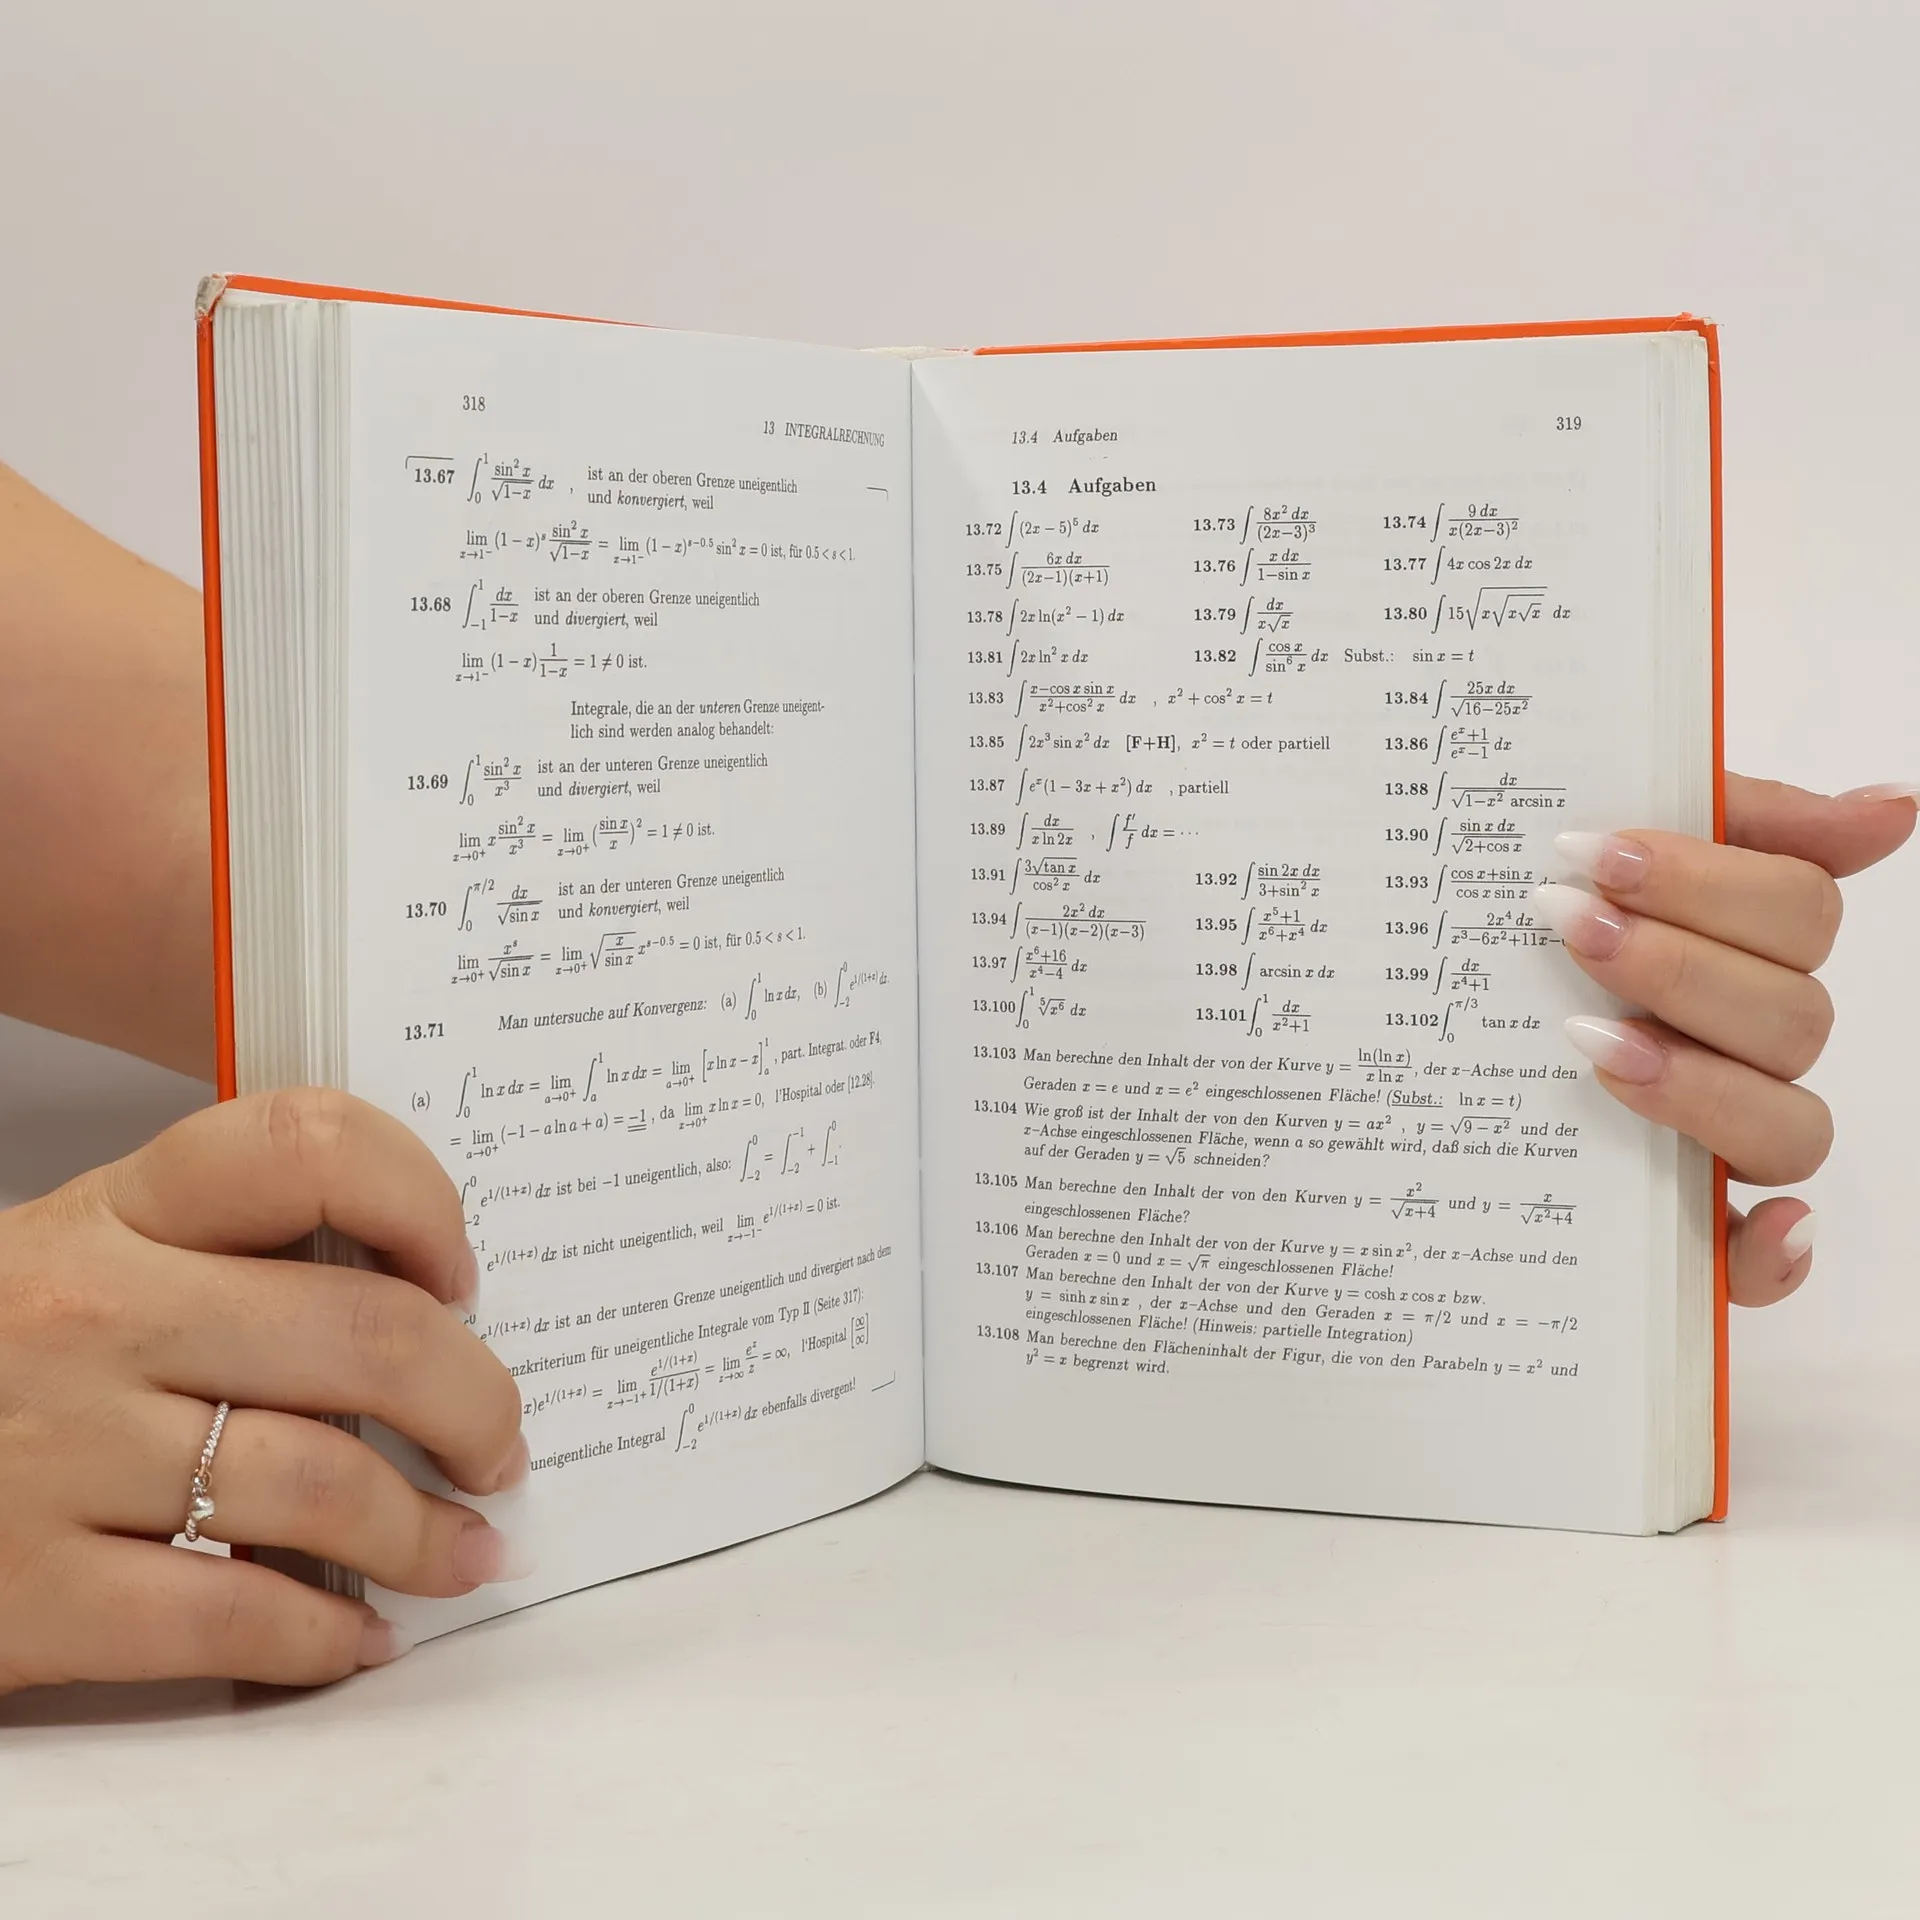 318
13 INTEGRALRECHNUNG
13.67 ∫₀¹ sin² x/√(1−x) dx , ist an der oberen Grenze uneigentlich
und konvergiert, weil
lim_{x→1⁻} (1 − x)^s sin² x/√(1−x) = lim_{x→1⁻} (1 − x)^{s−0.5} sin² x = 0 ist, für 0.5 < s < 1.
13.68 ∫₋₁¹ dx/(1−x) ist an der oberen Grenze uneigentlich
und divergiert, weil
lim_{x→1⁻} (1 − x) 1/(1−x) = 1 ≠ 0 ist.
Integrale, die an der unteren Grenze uneigent-
lich sind werden analog behandelt:
13.69 ∫₀¹ sin² x/x³ ist an der unteren Grenze uneigentlich
und divergiert, weil
lim_{x→0⁺} x sin² x/x³ = lim_{x→0⁺} (sin x/x)² = 1 ≠ 0 ist.
13.70 ∫₀^{π/2} dx/√(sin x) ist an der unteren Grenze uneigentlich
und konvergiert, weil
lim_{x→0⁺} x^s/√(sin x) = lim_{x→0⁺} √(x/sin x) x^{s−0.5} = 0 ist, für 0.5 < s < 1.
13.71 Man untersuche auf Konvergenz: (a) ∫₀¹ ln x dx, (b) ∫₋₂⁰ e^{1/(1+x)} dx.
(a) ∫₀¹ ln x dx = lim_{a→0⁺} ∫ₐ¹ ln x dx = lim_{a→0⁺} [x ln x − x]ₐ¹ , part. Integrat. oder F4,
= lim_{a→0⁺} (−1 − a ln a + a) = −1 , da lim_{x→0⁺} x ln x = 0, l'Hospital oder [12.28].
∫₋₂⁰ e^{1/(1+x)} dx ist bei −1 uneigentlich, also: ∫₋₂⁰ = ∫₋₂⁻¹ + ∫₋₁⁰.
e^{1/(1+x)} dx ist nicht uneigentlich, weil lim_{x→−1⁻} e^{1/(1+x)} = 0 ist.
e^{1/(1+x)} dx ist an der unteren Grenze uneigentlich und divergiert nach dem
nzkriterium für uneigentliche Integrale vom Typ II (Seite 317):
x)e^{1/(1+x)} = lim_{x→−1⁺} e^{1/(1+x)}/(1/(1+x)) = lim_{z→∞} e^z/z = ∞, l'Hospital [∞/∞]
uneigentliche Integral ∫₋₂⁰ e^{1/(1+x)} dx ebenfalls divergent!
13.4 Aufgaben 319
13.4 Aufgaben
13.72 ∫(2x − 5)⁵ dx 13.73 ∫ 8x² dx/(2x−3)³ 13.74 ∫ 9 dx/(x(2x−3)²)
13.75 ∫ 6x dx/((2x−1)(x+1)) 13.76 ∫ x dx/(1−sin x) 13.77 ∫ 4x cos 2x dx
13.78 ∫ 2x ln(x² − 1) dx 13.79 ∫ dx/(x√x) 13.80 ∫ 15√(x√(x√x)) dx
13.81 ∫ 2x ln² x dx 13.82 ∫ cos x/sin⁶ x dx Subst.: sin x = t
13.83 ∫ (x−cos x sin x)/(x²+cos² x) dx , x² + cos² x = t 13.84 ∫ 25x dx/√(16−25x²)
13.85 ∫ 2x³ sin x² dx [F+H], x² = t oder partiell 13.86 ∫ (eˣ+1)/(eˣ−1) dx
13.87 ∫ eˣ(1 − 3x + x²) dx , partiell 13.88 ∫ dx/(√(1−x²) arcsin x)
13.89 ∫ dx/(x ln 2x) , ∫ f′/f dx = ··· 13.90 ∫ sin x dx/√(2+cos x)
13.91 ∫ 3√(tan x)/cos² x dx 13.92 ∫ sin 2x dx/(3+sin² x) 13.93 ∫ (cos x+sin x)/(cos x sin x)
13.94 ∫ 2x² dx/((x−1)(x−2)(x−3)) 13.95 ∫ (x⁵+1)/(x⁶+x⁴) dx 13.96 ∫ 2x⁴ dx/(x³−6x²+11x−
13.97 ∫ (x⁶+16)/(x⁴−4) dx 13.98 ∫ arcsin x dx 13.99 ∫ dx/(x⁴+1)
13.100 ∫₀¹ ⁵√(x⁶) dx 13.101 ∫₀¹ dx/(x²+1) 13.102 ∫₀^{π/3} tan x dx
13.103 Man berechne den Inhalt der von der Kurve y = ln(ln x)/(x ln x), der x−Achse und den
Geraden x = e und x = e² eingeschlossenen Fläche! (Subst.: ln x = t)
13.104 Wie groß ist der Inhalt der von den Kurven y = ax² , y = √(9 − x²) und der
x−Achse eingeschlossenen Fläche, wenn a so gewählt wird, daß sich die Kurven
auf der Geraden y = √5 schneiden?
13.105 Man berechne den Inhalt der von den Kurven y = x²/√(x+4) und y = x/√(x²+4)
eingeschlossenen Fläche?
13.106 Man berechne den Inhalt der von der Kurve y = x sin x², der x−Achse und den
Geraden x = 0 und x = √π eingeschlossenen Fläche!
13.107 Man berechne den Inhalt der von der Kurve y = cosh x cos x bzw.
y = sinh x sin x , der x−Achse und den Geraden x = π/2 und x = −π/2
eingeschlossenen Fläche! (Hinweis: partielle Integration)
13.108 Man berechne den Flächeninhalt der Figur, die von den Parabeln y = x² und
y² = x begrenzt wird.